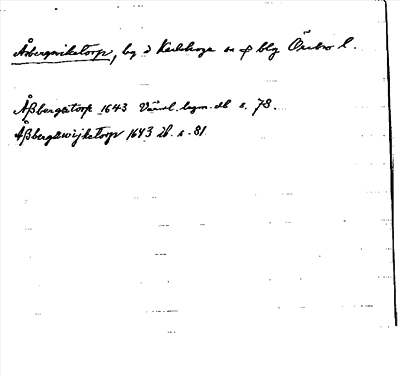 Åsbergsvikstorp, by i Karlskoga sn o blg Örebro l.
Åβbergstorp 1643 Värml. bygn. db s. 78.
Åβbergzwijkstorp 1643 ib. s. 81